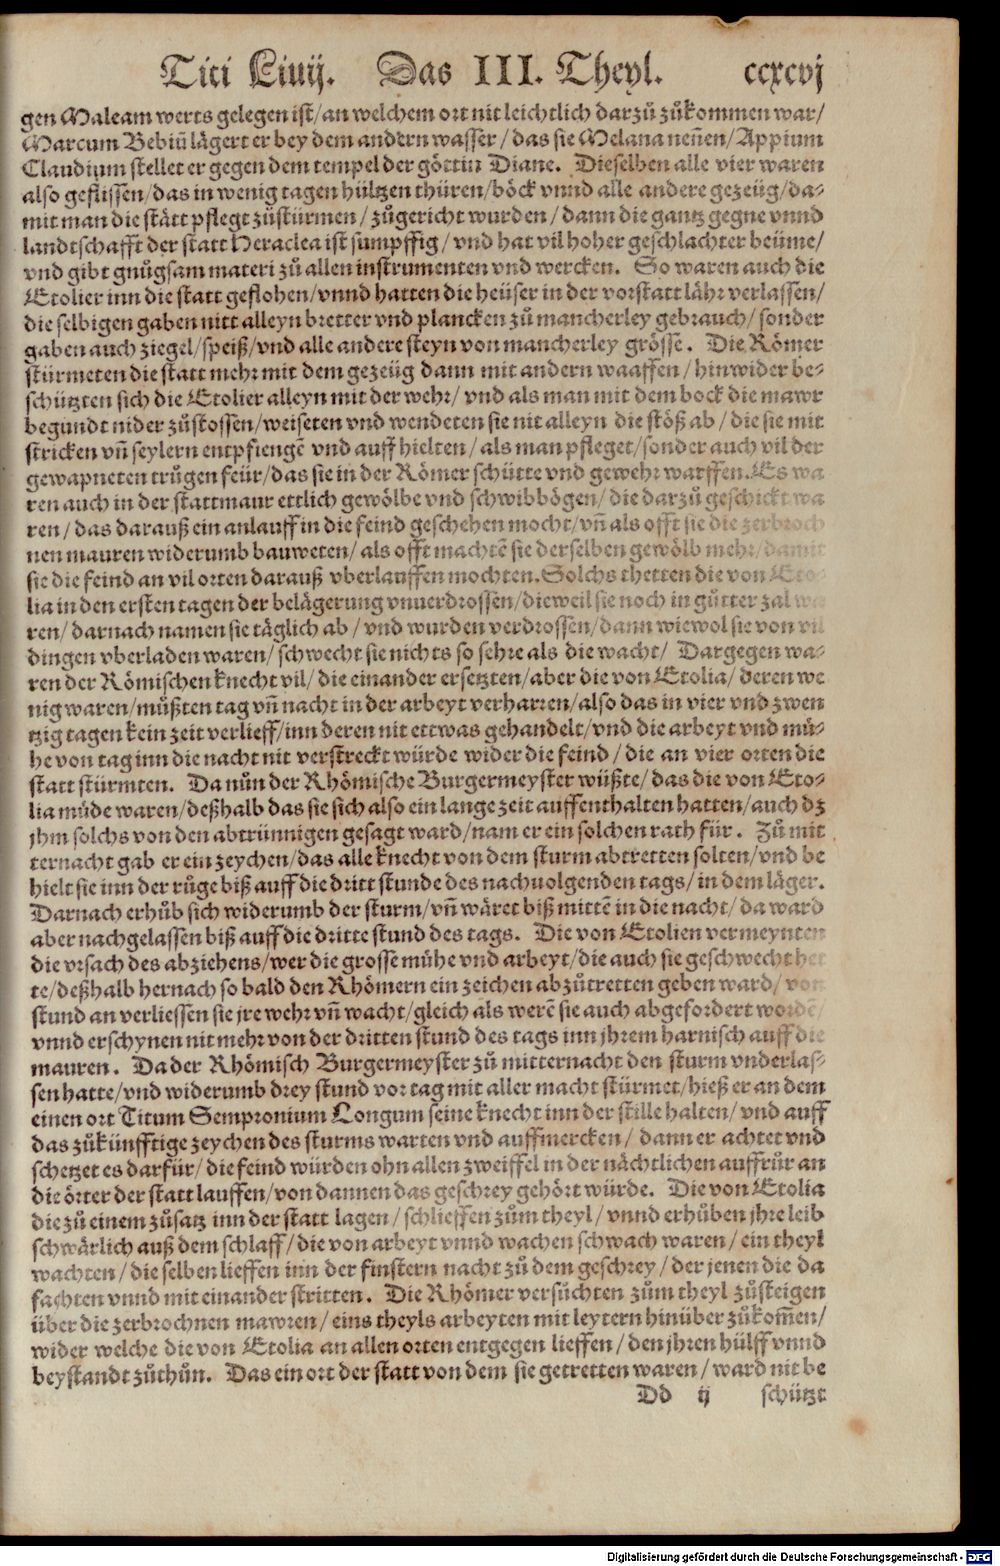 Titi Liuij. Das III. Theyl. ccxcvj
gen Maleam werts gelegen ist/an welchem ort nit leichtlich darzů zůkommen war/
Marcum Bebiū lägert er bey dem andern wasser/das sie Melana neñen/Appium
Claudium stellet er gegen dem tempel der göttin Diane. Dieselben alle vier waren
also geflissen/das in wenig tagen hültzen thüren/böck vnnd alle andere gezeüg/da-
mit man die stätt pflegt zůstürmen/zůgericht wurden/dann die gantz gegne vnnd
landtschafft der statt Heraclea ist sumpffig/vnd hat vil hoher geschlachter beüme/
vnd gibt gnůgsam materi zů allen instrumenten vnd wercken. So waren auch die
Etolier inn die statt geflohen/vnnd hatten die heüser in der vorstatt lähr verlassen/
die selbigen gaben nitt alleyn bretter vnd plancken zů mancherley gebrauch/sonder
gaben auch ziegel/speiß/vnd alle andere steyn von mancherley grösse. Die Römer
stürmeten die statt mehr mit dem gezeüg dann mit andern waaffen/hinwider be-
schützten sich die Etolier alleyn mit der wehr/vnd als man mit dem bock die mawr
begundt nider zůstossen/weiseten vnd wendeten sie nit alleyn die stöß ab/die sie mit
stricken vñ seylern entpfiengē vnd auff hielten/als man pfleget/sonder auch vil der
gewapneten trůgen feür/das sie in der Römer schütte vnd gewehr warffen. Es wa
ren auch in der stattmaur ettlich gewölbe vnd schwibbögen/die darzů geschickt wa
ren/das darauß ein anlauff in die feind geschehen mocht/vñ als offt sie die zerbroch
nen mauren widerumb bauweten/als offt machtē sie derselben gewölb mehr/damit
sie die feind an vil orten darauß vberlauffen mochten. Solchs thetten die von Eto-
lia in den ersten tagen der belägerung vnuerdrossen/dieweil sie noch in gůtter zal wa
ren/darnach namen sie täglich ab/vnd wurden verdrossen/dann wiewol sie von vil
dingen vberladen waren/schwecht sie nichts so sehre als die wacht/Dargegen wa-
ren der Römischen knecht vil/die einander ersetzten/aber die von Etolia/deren we
nig waren/můßten tag vñ nacht in der arbeyt verharren/also das in vier vnd zwen
tzig tagen kein zeit verlieff/inn deren nit ettwas gehandelt/vnd die arbeyt vnd mü-
he von tag inn die nacht nit verstreckt würde wider die feind/die an vier orten die
statt stürmten. Da nůn der Rhömische Burgermeyster wüßte/das die von Eto-
lia müde waren/deßhalb das sie sich also ein lange zeit auffenthalten hatten/auch dz
jhm solchs von den abtrünnigen gesagt ward/nam er ein solchen rath für. Zů mit
ternacht gab er ein zeychen/das alle knecht von dem sturm abtretten solten/vnd be
hielt sie inn der růge biß auff die dritt stunde des nachuolgenden tags/in dem läger.
Darnach erhůb sich widerumb der sturm/vñ wäret biß mittē in die nacht/da ward
aber nachgelassen biß auff die dritte stund des tags. Die von Etolien vermeynten
die vrsach des abziehens/wer die grosse mühe vnd arbeyt/die auch sie geschwecht het
te/deßhalb hernach so bald den Rhömern ein zeichen abzůtretten geben ward/von
stund an verliessen sie jre wehr vñ wacht/gleich als werē sie auch abgefordert wordē/
vnnd erschynen nit mehr von der dritten stund des tags inn jhrem harnisch auff die
mauren. Da der Rhömisch Burgermeyster zů mitternacht den sturm vnderlas-
sen hatte/vnd widerumb drey stund vor tag mit aller macht stürmet/hieß er an dem
einen ort Titum Sempronium Longum seine knecht inn der stille halten/vnd auff
das zůkünfftige zeychen des sturms warten vnd auffmercken/dann er achtet vnd
schetzet es darfür/die feind würden ohn allen zweiffel in der nächtlichen auffrůr an
die örter der statt lauffen/von dannen das geschrey gehört würde. Die von Etolia
die zů einem zůsatz inn der statt lagen/schlieffen zům theyl/vnnd erhůben jhre leib
schwärlich auß dem schlaff/die von arbeyt vnnd wachen schwach waren/ein theyl
wachten/die selben lieffen inn der finstern nacht zů dem geschrey/der jenen die da
fachten vnnd mit einander stritten. Die Rhömer versůchten zům theyl zůsteigen
über die zerbrochnen mawren/eins theyls arbeyten mit leytern hinüber zůkom̃en/
wider welche die von Etolia an allen orten entgegen lieffen/den jhren hülff vnnd
beystandt zůthůn. Das ein ort der statt von dem sie getretten waren/ward nit be
Dd ij schützt
Digitalisierung gefördert durch die Deutsche Forschungsgemeinschaft - DFG